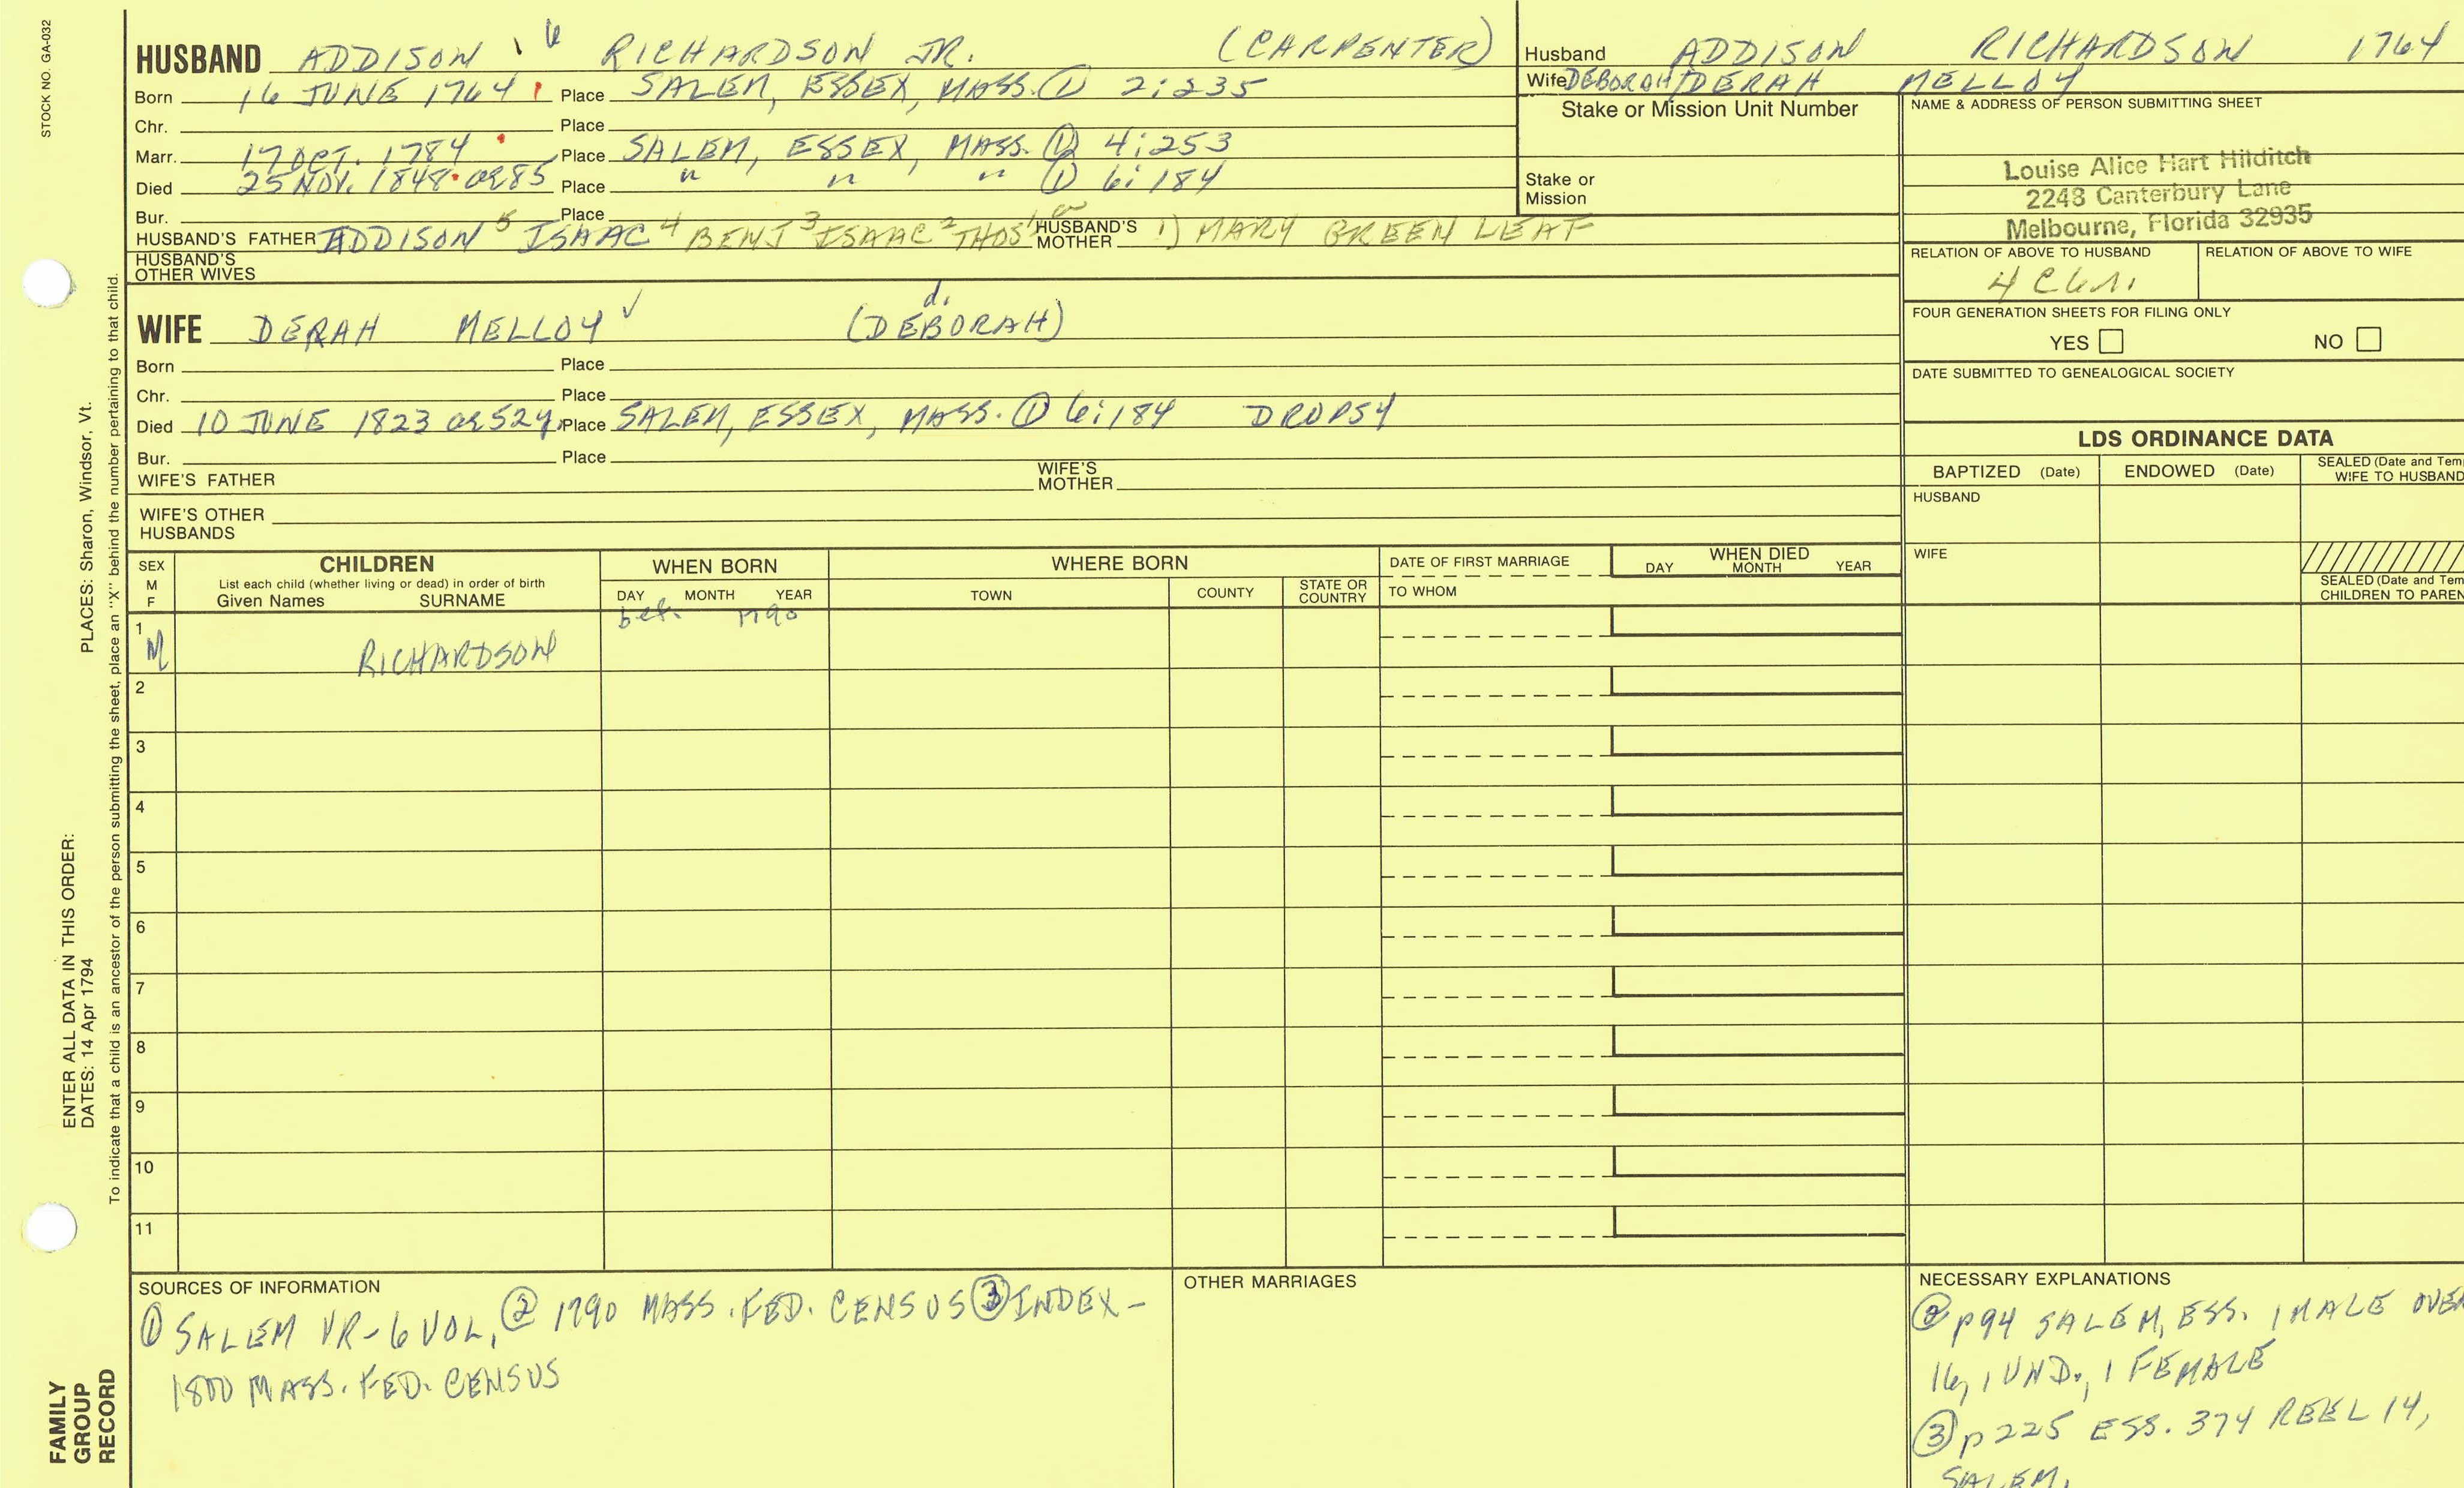 STOCK NO. GA-032
HUSBAND ADDISON 6 RICHARDSON JR. (CARPENTER)
Born 16 JUNE 1764 Place SALEM, ESSEX, MASS. ① 2:235
Chr. Place
Marr. 17 OCT. 1784 Place SALEM, ESSEX, MASS. ① 4:253
Died 25 NOV. 1848 ae 85 Place " " " ① 6:184
Bur. Place
HUSBAND'S FATHER ADDISON 5 ISAAC 4 BENJ 3 ISAAC 2 THOS 1 HUSBAND'S MOTHER 1) MARY GREENLEAF
HUSBAND'S OTHER WIVES
d.
WIFE DERAH MELLOY ✓ (DEBORAH)
Born Place
Chr. Place
Died 10 JUNE 1823 ae 52y. Place SALEM, ESSEX, MASS. ① 6:184 DROPSY
Bur. Place
WIFE'S FATHER WIFE'S MOTHER
WIFE'S OTHER HUSBANDS
Husband ADDISON RICHARDSON 1764
Wife DEBORAH/DERAH MELLOY
Stake or Mission Unit Number
Stake or Mission
NAME & ADDRESS OF PERSON SUBMITTING SHEET
Louise Alice Hart Hilditch
2248 Canterbury Lane
Melbourne, Florida 32935
RELATION OF ABOVE TO HUSBAND RELATION OF ABOVE TO WIFE
4 C6r1.
FOUR GENERATION SHEETS FOR FILING ONLY
YES NO
DATE SUBMITTED TO GENEALOGICAL SOCIETY
LDS ORDINANCE DATA
BAPTIZED (Date) ENDOWED (Date) SEALED (Date and Tem
WIFE TO HUSBAND
HUSBAND
WIFE
SEALED (Date and Tem
CHILDREN TO PAREN
SEX M F CHILDREN WHEN BORN WHERE BORN DATE OF FIRST MARRIAGE WHEN DIED
List each child (whether living or dead) in order of birth
Given Names SURNAME DAY MONTH YEAR TOWN COUNTY STATE OR COUNTRY TO WHOM DAY MONTH YEAR
1 bef. 1790
M RICHARDSON
2
3
4
5
6
7
8
9
10
11
SOURCES OF INFORMATION
① SALEM VR-6 VOL, ② 1790 MASS. FED. CENSUS ③ INDEX-
1800 MASS. FED. CENSUS
OTHER MARRIAGES
NECESSARY EXPLANATIONS
② p94 SALEM, ESS. 1 MALE OVER
16, 1 UND., 1 FEMALE
③ p225 ESS. 374 REEL 14,
SALEM.
ENTER ALL DATA IN THIS ORDER:
DATES: 14 Apr 1794 PLACES: Sharon, Windsor, Vt.
To indicate that a child is an ancestor of the person submitting the sheet, place an "X" behind the number pertaining to that child.
FAMILY
GROUP
RECORD